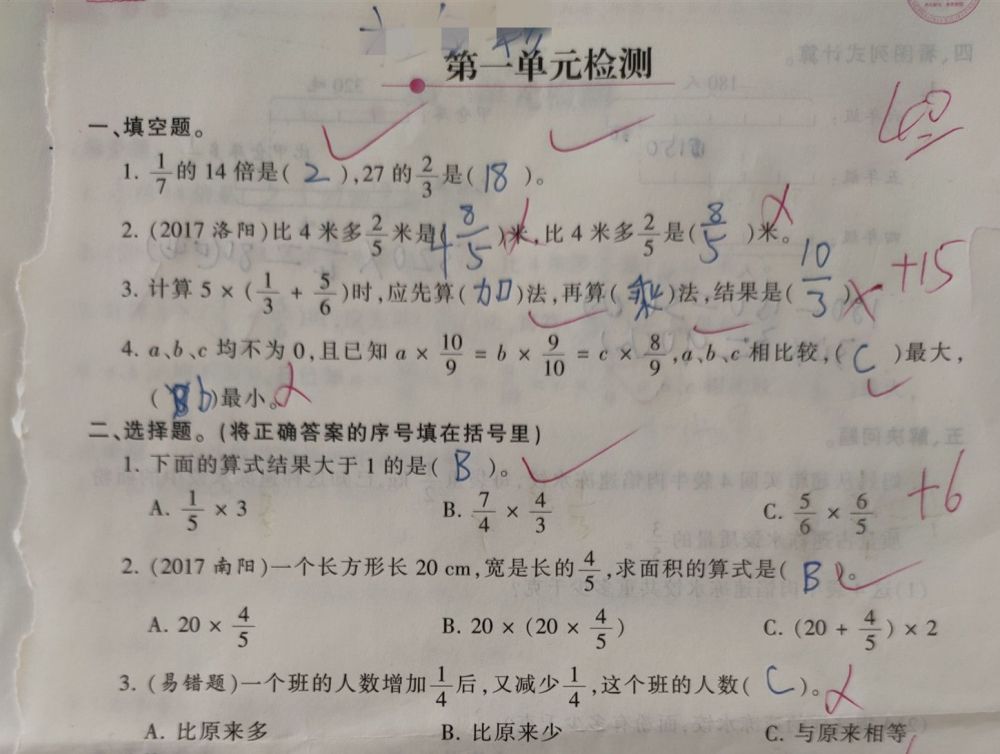 第一单元检测
60
一、填空题。
1. 1/7的14倍是( 2 ),27的2/3是( 18 )。
2. (2017 洛阳)比4米多2/5米是( 4 8/5 )米,比4米多2/5是( 8/5 )米。
3. 计算5×(1/3+5/6)时,应先算( 加 )法,再算( 乘 )法,结果是( 10/3 )。
+15
4. a、b、c均不为0,且已知a×10/9=b×9/10=c×8/9,a、b、c相比较,( C )最大,
( b )最小。
二、选择题。(将正确答案的序号填在括号里)
1. 下面的算式结果大于1的是( B )。
A. 1/5×3 B. 7/4×4/3 C. 5/6×6/5
+6
2. (2017 南阳)一个长方形长20 cm,宽是长的4/5,求面积的算式是( B )。
A. 20×4/5 B. 20×(20×4/5) C. (20+4/5)×2
3. (易错题)一个班的人数增加1/4后,又减少1/4,这个班的人数( C )。
A. 比原来多 B. 比原来少 C. 与原来相等